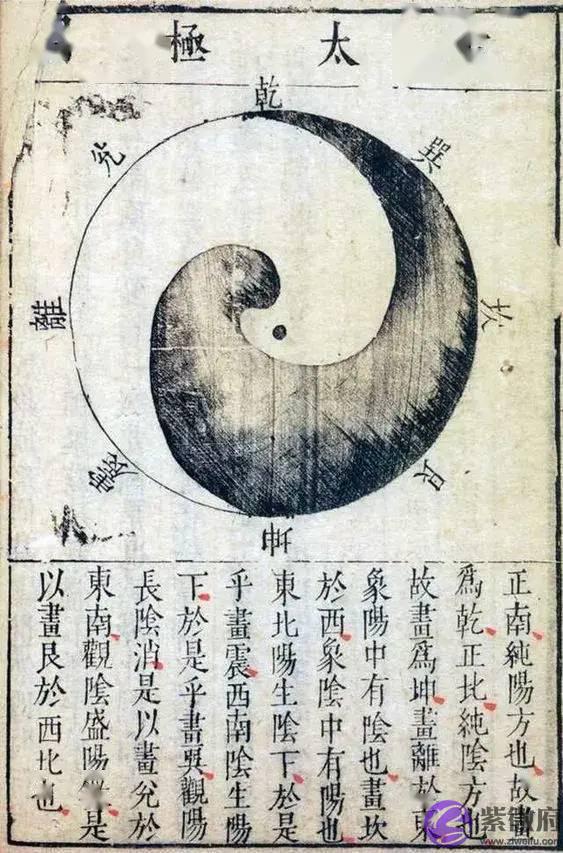 太極
乾
兌
巽
離
坎
震
艮
坤
正南純陽方也故畫
爲乾正北純陰方也
故畫爲坤畫離於東
象陽中有陰也畫坎
於西象陰中有陽也
東北陽生陰下於是
乎畫震西南陰生陽
下於是乎畫巽觀陽
長陰消是以畫兌於
東南觀陰盛陽是
以畫艮於西北也
紫微府
www.ziweifu.com